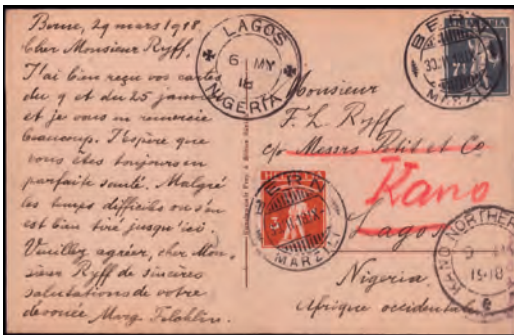 Berne, 29 mars 1918.
Cher Monsieur Ryff,
J'ai bien reçu vos cartes
du 9 et du 25 janvier
et je vous en remercie
beaucoup. J'espère que
vous êtes toujours en
parfaite santé. Malgré
les temps difficiles on s'en
est bien tiré jusqu'ici.
Veuillez agréer, cher Mon-
sieur Ryff de sincères
salutations de votre
dévouée Marg.
LAGOS
6 MY
18
NIGERIA
HELVETIA
7½
BERN
MARZILI
Monsieur
F. L. Ryff
c/o Messrs Petit et Co
Kano
Lagos
Nigeria.
Afrique occidentale
BERN
MARZILI
KANO NORTHER
1918